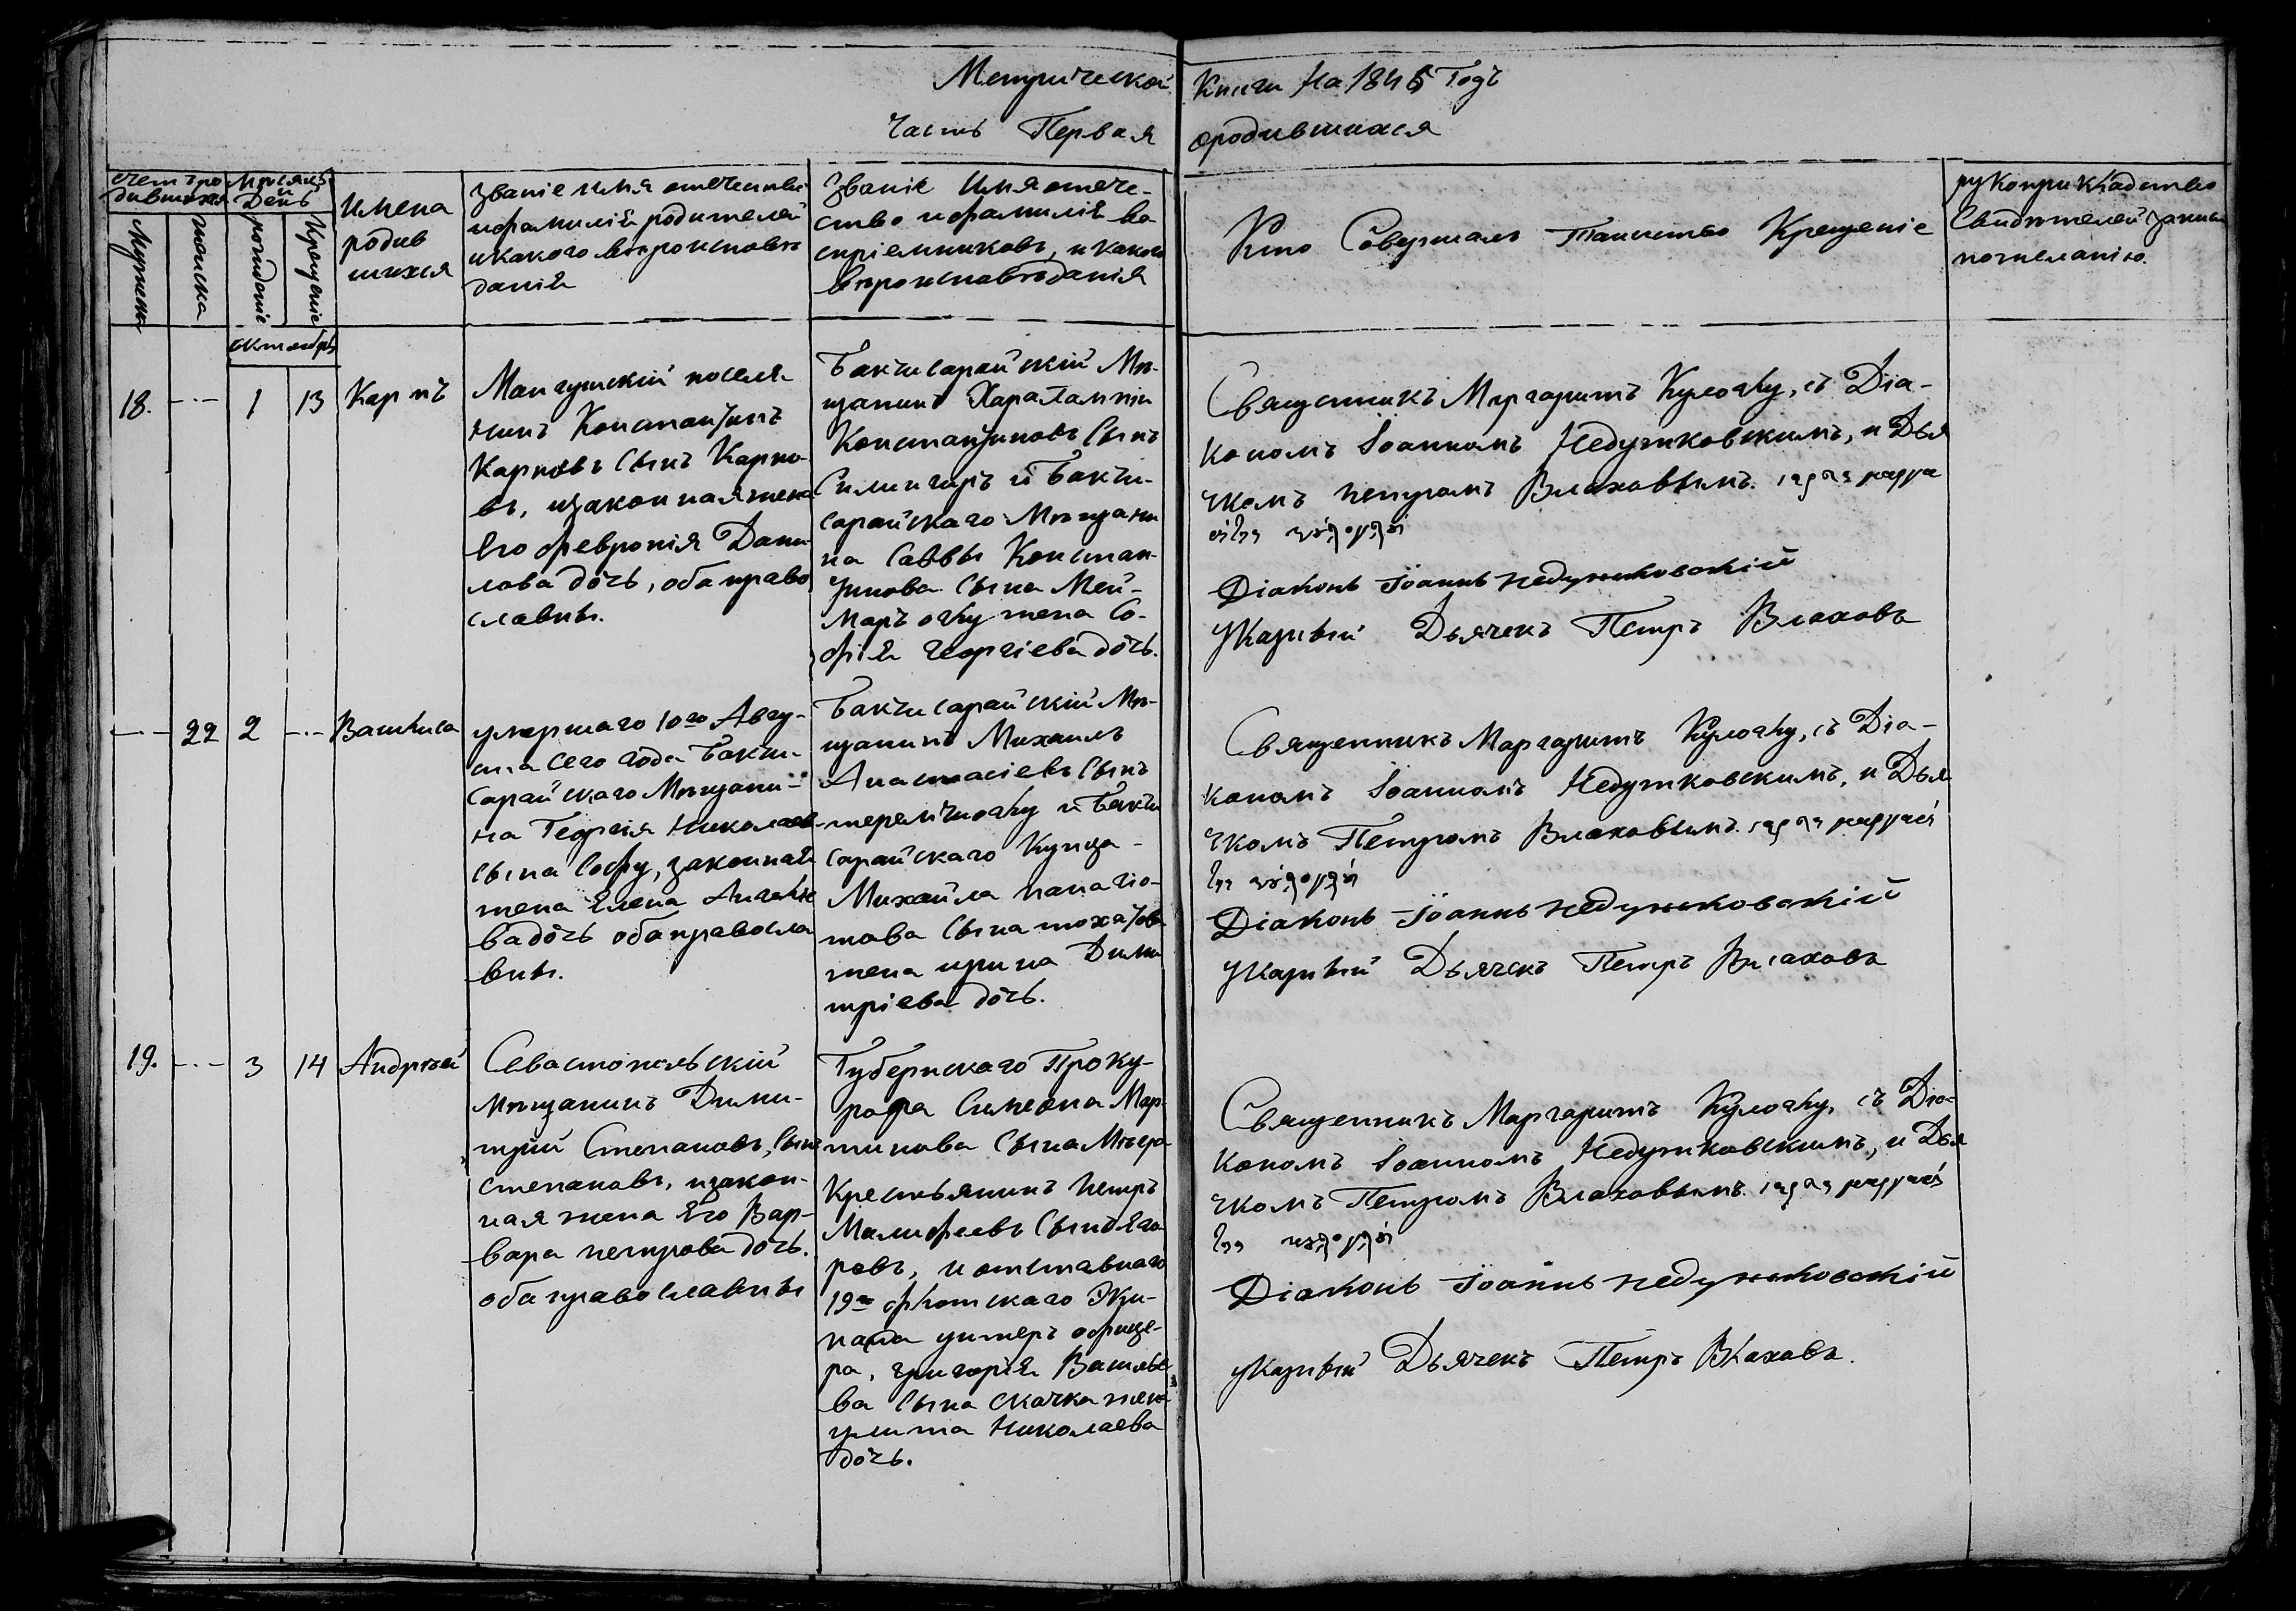 Метрической Книги на 1845 Годъ
Часть Первая ородившихся
Счетъ ро-
дившихся
Мужеска
женска
Мѣсяцъ
и
День
рожденіе
Крещеніе
Имена
родив
шихся
Званіе имя отечество
ифамилія родителей
икакого вѣроисповѣ
данія
Званіе Имя отече-
ство ифамилія во
спріемниковъ, и какого
вѣроисповѣданія
Кто Совершалъ Таинство Крещеніе
рукоприкладство
Свидѣтелей записи
пожеланію.
октябрь
18. 1 13 Карпъ
Мангушскій поселя-
нинъ Константинъ
Карповъ Сынъ Карпо-
въ, изаконная жена
Его февронія Дани-
лова дочь, оба право
славны.
Бакчисарайскій Мѣ-
щанинъ Харалампій
Константиновъ Сынъ
и Бакчи-
сарайскаго Мѣщани
на Саввы Констан-
тинова Сына Мей-
маръ оглу жена Со-
фія Георгіева дочь.
Священникъ Маргаритъ Кулоглу, съ Діа-
кономъ Іоанномъ Недужковскимъ, и Дья
чкомъ петромъ Влаховымъ.
Діаконъ Іоаннъ недужковскій
Указный Дьячекъ Петръ Влаховъ
22 2 Василиса
умершаго 10го Авгу-
ста сего года Бакчи-
Сарайскаго Мѣщани-
на Георгія Николаев
сына Софу, законная
жена Елена
ва дочь оба правосла
вны.
Бакчисарайскій Мѣ-
щанинъ Михаилъ
Анастасіевъ Сынъ
и Бакчи
сарайскаго Купца
Михайла панагіо-
това Сына
жена ирина Дими
тріева дочь.
Священникъ Маргаритъ Кулоглу, съ Діа-
кономъ Іоанномъ Недужковскимъ, и Дья
чкомъ Петромъ Влаховымъ.
Діаконъ Іоаннъ недужковскій
Указный Дьячекъ Петръ Влаховъ
19. 3 14 Андрей
Севастопольскій
мѣщанинъ Дими-
трій Степановъ, Сынъ
Степановъ, изакон-
ная жена Его Вар-
вара петрова дочь.
оба православны
Губернскаго Проку-
рора Симеона Мар-
тинова Сына
Крестьянинъ петръ
Малифеевъ Сынъ Его
ровъ, и отставнаго
19го флотскаго Эки-
пажа унтеръ офице-
ра, григорія Василье
ва Сына Скачка жена
улита Николаева
дочь.
Священникъ Маргаритъ Кулоглу, съ Діа-
кономъ Іоанномъ Недужковскимъ, и Дья
чкомъ Петромъ Влаховымъ.
Діаконъ Іоаннъ недужковскій
указный Дьячекъ Петръ Влаховъ.